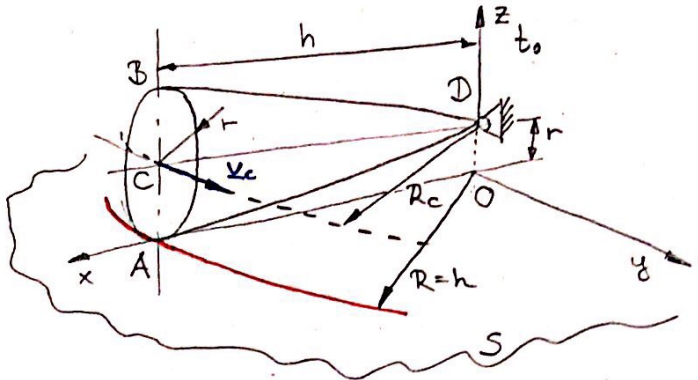 z
h
t₀
B
D
r
r
C
v_c
R_c
O
x
A
R=h
y
S